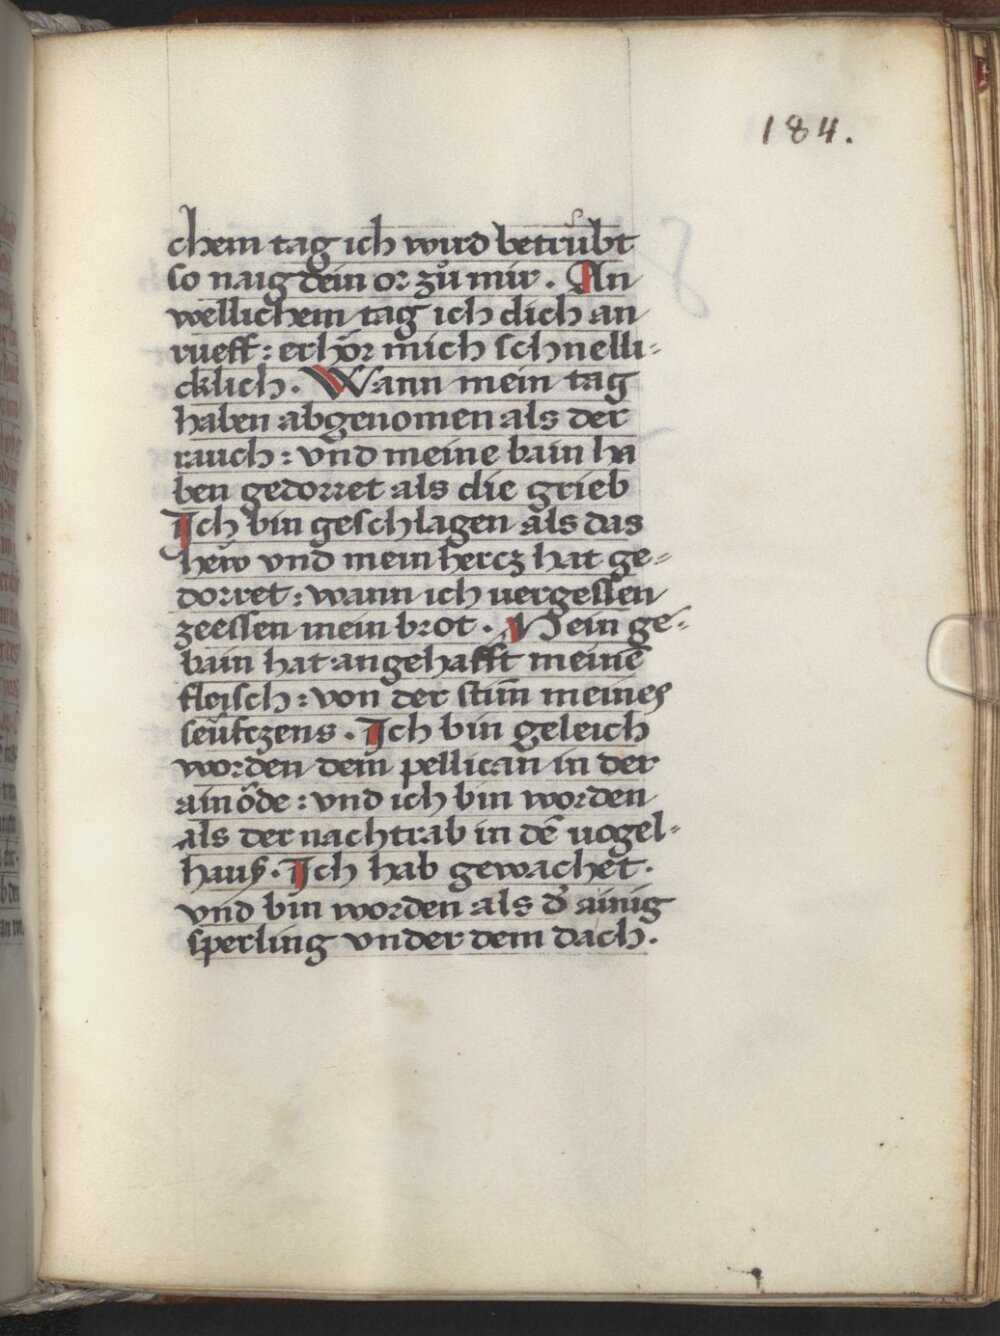 184.
chem tag ich wird betrübt
so naig dein or zů mir. An
wellichem tag ich dich an
rueff: erhör mich schnelli-
cklich. Wann mein tag
haben abgenomen als der
rauch: vnd meine bain ha
ben gedorret als die grieb
Ich bin geschlagen als das
hew vnd mein hercz hat ge-
dorret: wann ich uergessen
zeessen mein brot. Mein ge-
bain hat angehafft meinē
fleisch: von der stim̄ meines
seüfczens. Ich bin geleich
worden dem pellican in der
ainöde: vnd ich bin worden
als der nachtrab in dē uogel-
hauß. Ich hab gewachet.
vnd bin worden als d' ainig
sperling vnder dem dach.